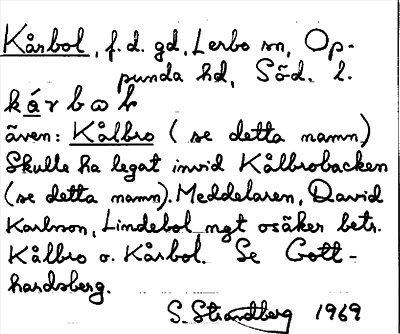 Kårbol, f.d. gd, Lerbo sn, Op-
punda hd, Söd. l.
kárbωl
även: Kålbro (se detta namn)
Skulle ha legat invid Kålbrobacken
(se detta namn). Meddelaren, David
Karlsson, Lindebol mgt osäker betr.
Kålbro o. Kårbol. Se Gott-
hardsberg.
S. Strandberg 1969